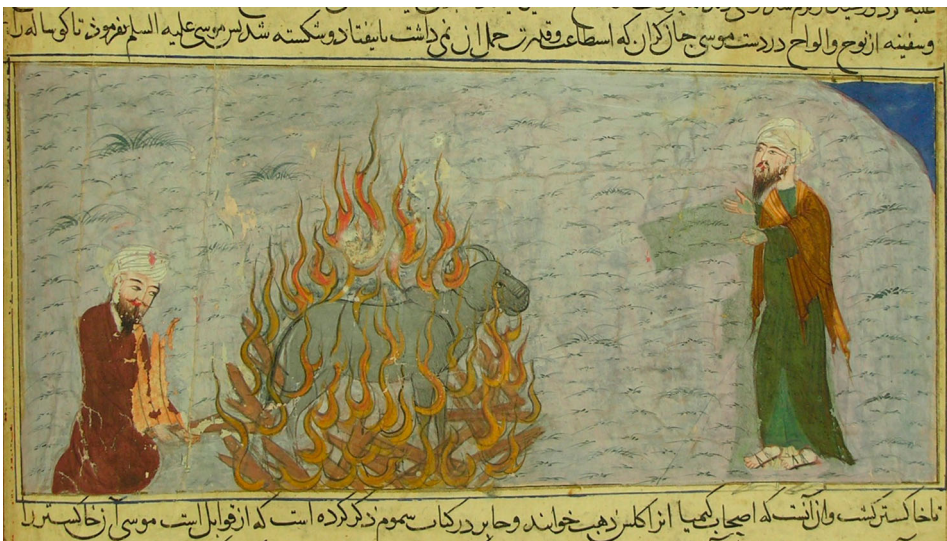 وسفینه از نوح والواح در دست موسی جنان کران که اسطاعت وقدرت حمل ان نمی داشت تا بیفتاد و شکسته شد بس موسی علیه السلم بفرموذ تا کوساله را
تا خاکستر کشت وان آنست که اصحاب کیمیا انرا کلس ذهب خوانند و جابر در کتاب سموم ذکر کرده است که از قوابل است موسی آن خاکستر را